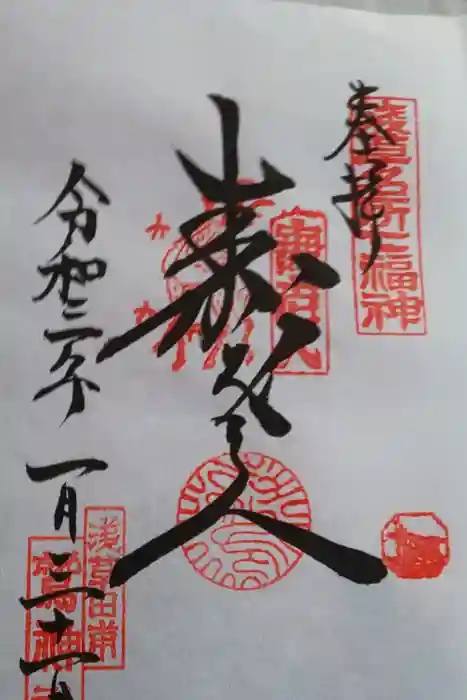 奉拝
浅草名所七福神
寿老人
壽老人
令和三年
一月三十一日
浅草田甫
鷲神社